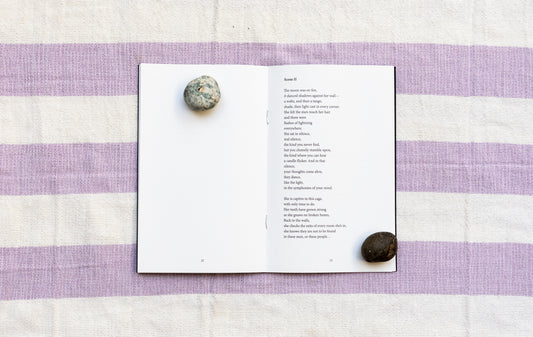 Scene II
The room was on fire,
it danced shadows against her wall—
a waltz, and then a tango,
shade, then light cast in every corner.
She felt the stars touch her feet
and there were
flashes of lightning
everywhere.
She sat in silence,
real silence,
the kind you never find,
but you clumsily stumble upon,
the kind where you can hear
a candle flicker. And in that
silence,
your thoughts come alive,
they dance,
like the light,
to the symphonies of your mind.
She is captive in this cage,
with only time to do.
Her teeth have grown strong
as she gnaws on broken bones,
Back to the walls,
she checks the exits of every room she's in,
she knows they are not to be found
in these men, or these people…